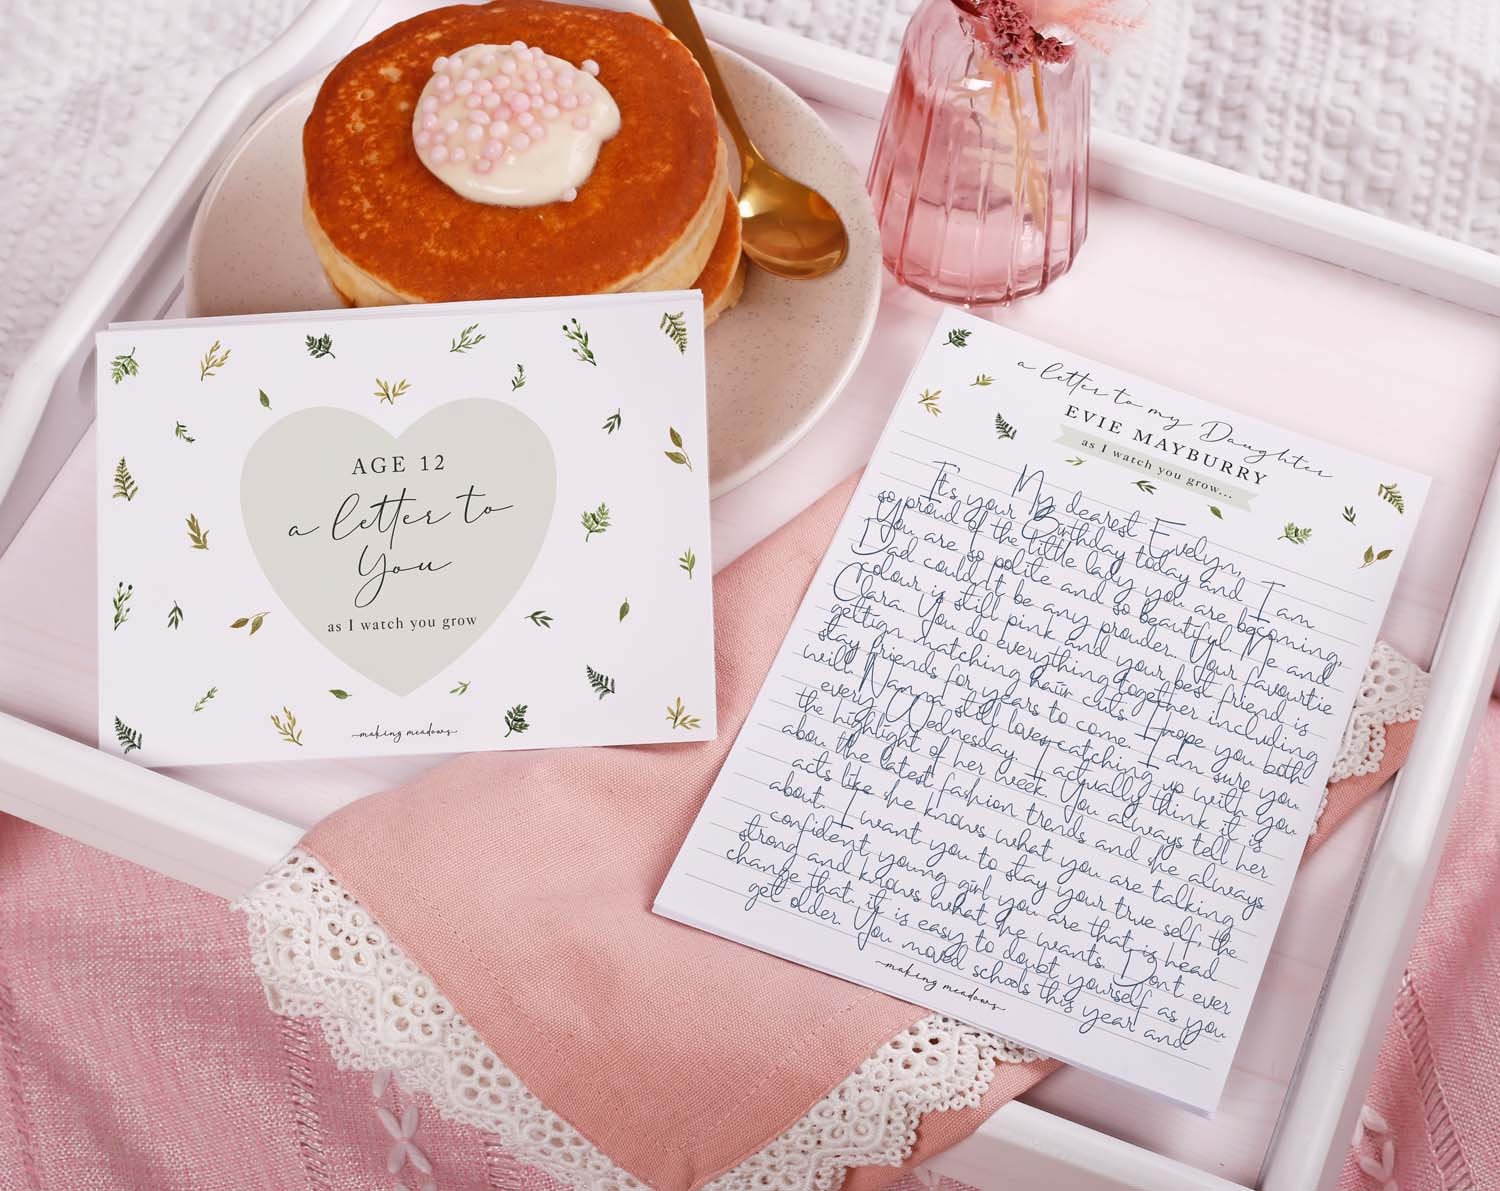 AGE 12
a letter to
You
as I watch you grow
making meadows
a letter to my Daughter
EVIE MAYBURRY
as I watch you grow...
My dearest Evelyn,
It's your Birthday today and I am
so proud of the little lady you are becoming,
You are so polite and so beautiful. Me and
Dad couldn't be any prouder. Your favourtie
colour is still pink and your best friend is
Clara. You do everything together including
gettign matching hair cuts. I hope you both
stay friends for years to come. I am sure you
will. Nampa still loves catching up with you
every Wednesday. I actually think it is
the highlight of her week. You always tell her
abou the latest fashion trends and she always
acts like she knows what you are talking
about. I want you to stay your true self, the
confident young girl you are that is head
strong and knows what she wants. Dont ever
change that. it is easy to doubt yourself as you
get older. You moved schools this year and
making meadows